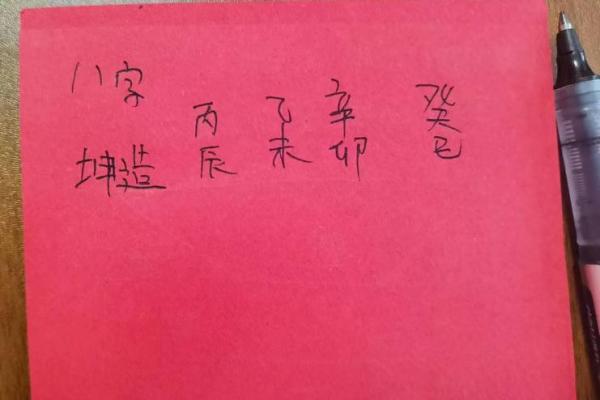 八字
坤造 丙辰 乙未 辛卯 癸巳